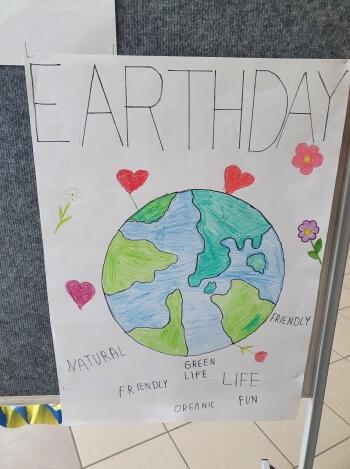 EARTHDAY
FRIENDLY
NATURAL
GREEN
LIFE
FRIENDLY
LIFE
ORGANIC
FUN